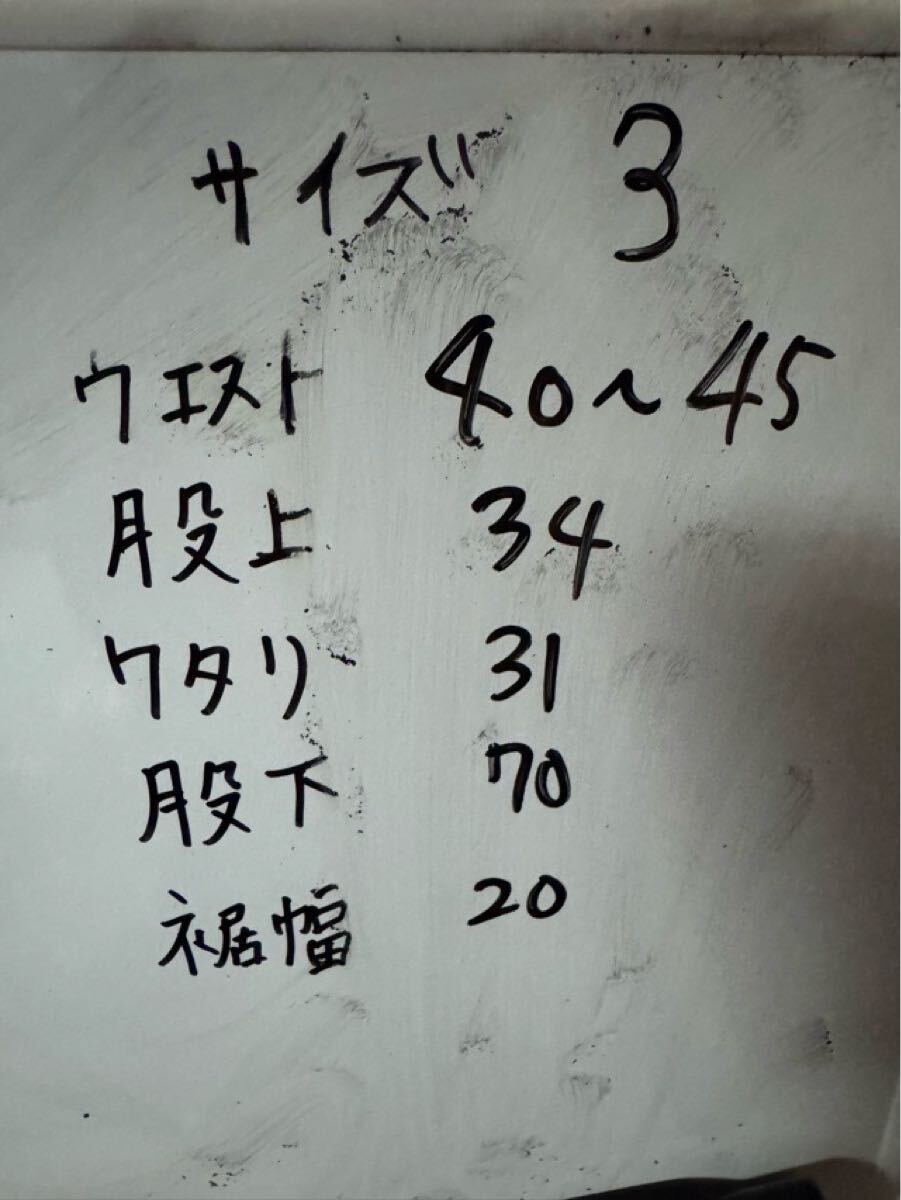 サイズ 3
ウエスト 40~45
股上 34
ワタリ 31
股下 70
裾幅 20